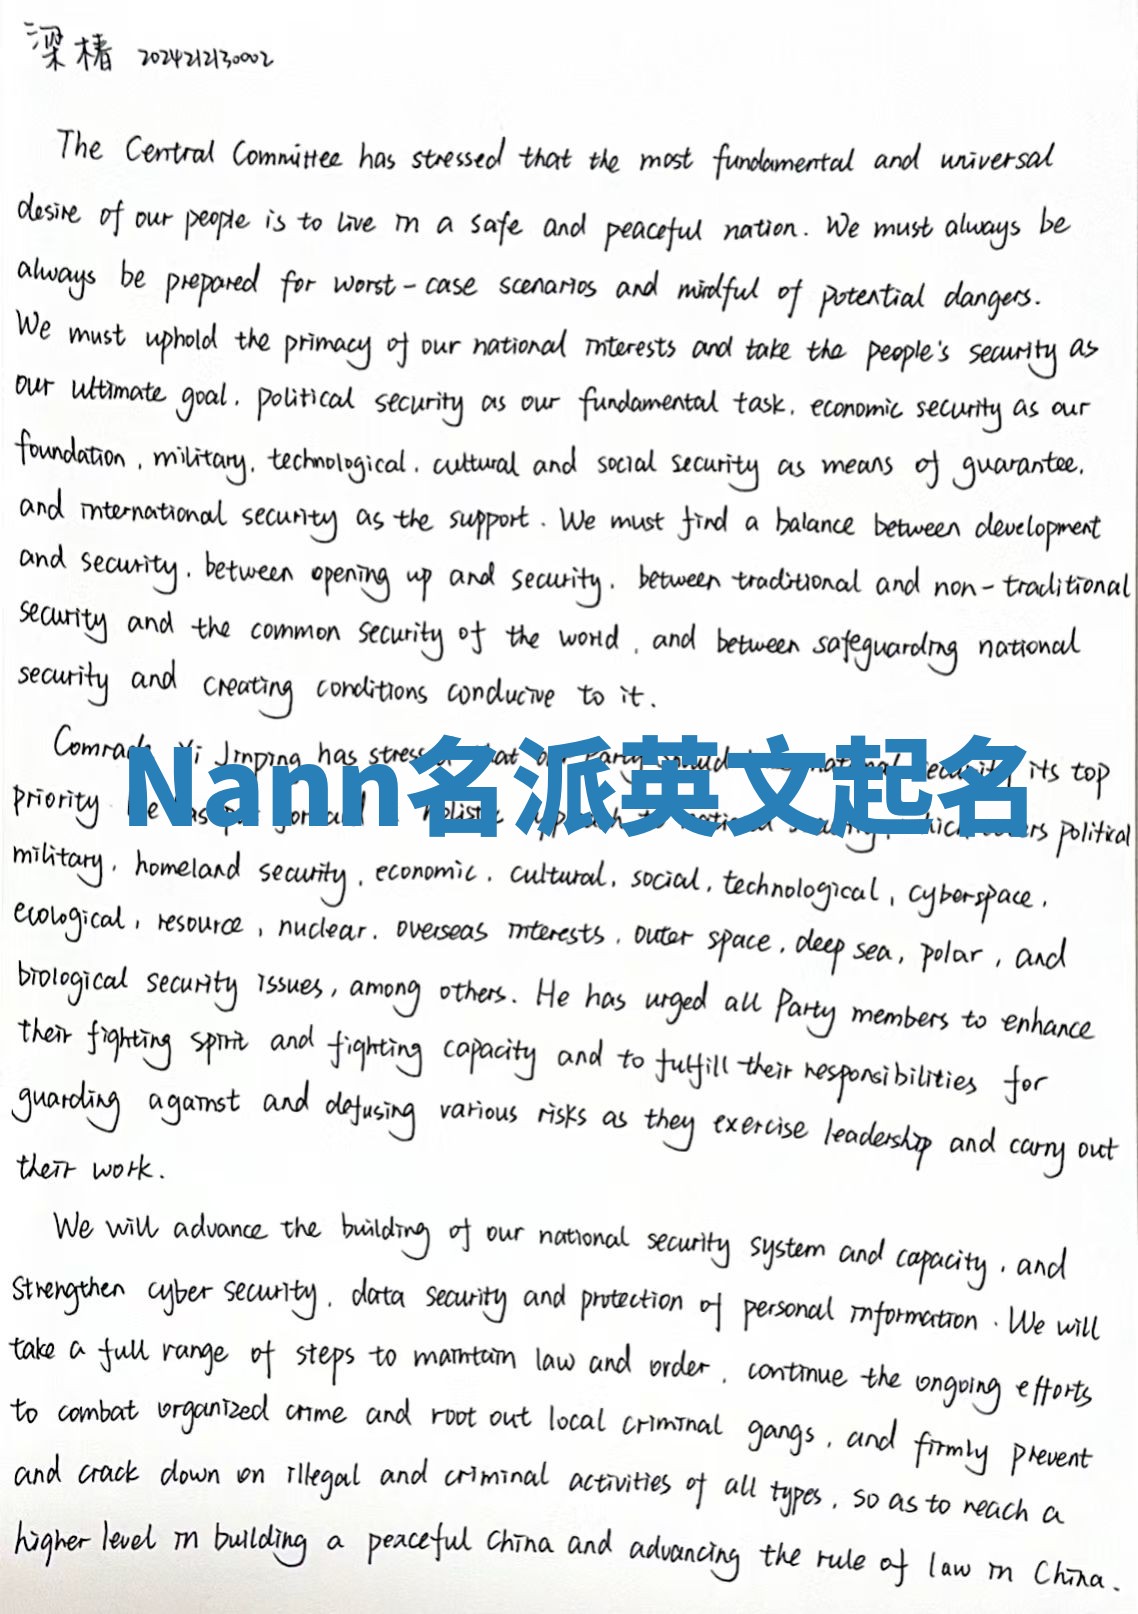 梁椿 2024212130002
The Central Committee has stressed that the most fundamental and universal
desire of our people is to live in a safe and peaceful nation. We must always be
always be prepared for worst-case scenarios and mindful of potential dangers.
We must uphold the primacy of our national interests and take the people's security as
our ultimate goal, political security as our fundamental task, economic security as our
foundation, military, technological, cultural and social security as means of guarantee,
and international security as the support. We must find a balance between development
and security, between opening up and security, between traditional and non-traditional
security and the common security of the world, and between safeguarding national
security and creating conditions conducive to it.
Comrade Xi Jinping has stressed that our Party its top
Nann名派英文起名
priority political
military, homeland security, economic, cultural, social, technological, cyberspace,
ecological, resource, nuclear, overseas interests, outer space, deep sea, polar, and
biological security issues, among others. He has urged all Party members to enhance
their fighting spirit and fighting capacity and to fulfill their responsibilities for
guarding against and defusing various risks as they exercise leadership and carry out
their work.
We will advance the building of our national security system and capacity, and
strengthen cyber security, data security and protection of personal information. We will
take a full range of steps to maintain law and order, continue the ongoing efforts
to combat organized crime and root out local criminal gangs, and firmly prevent
and crack down on illegal and criminal activities of all types, so as to reach a
higher level in building a peaceful China and advancing the rule of law in China.